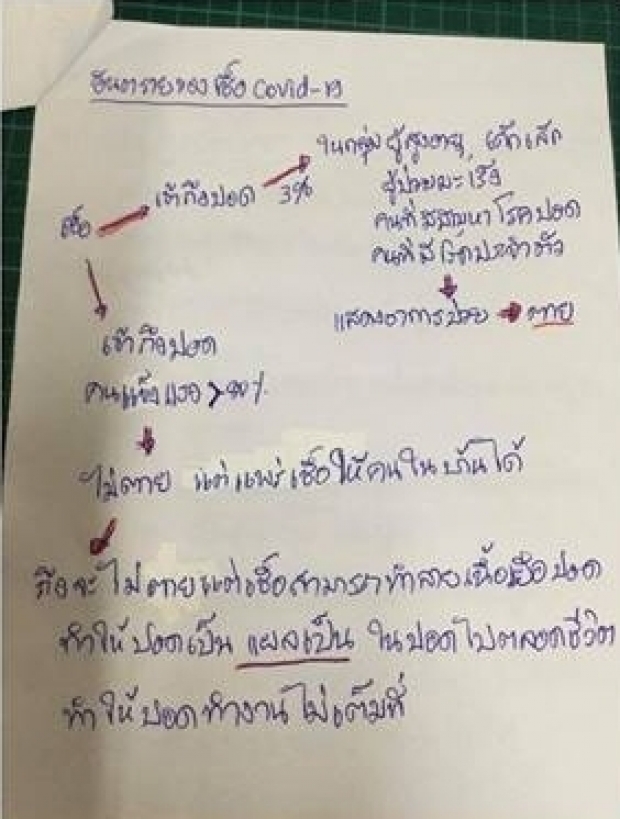 อันตรายของ เชื้อ Covid-19
เชื้อ
เข้าถึงปอด 3%
ในกลุ่ม ผู้สูงอายุ, เด็กเล็ก
ผู้ป่วยมะเร็ง
คนที่มีปัญหา โรคปอด
คนที่มี โรคประจำตัว
แสดงอาการป่วย ตาย
เข้าถึงปอด
คนแข็งแรง >90%
ไม่ตาย แต่แพร่เชื้อให้คนในบ้านได้
ถึงจะไม่ตายแต่เชื้อสามารถทำลายเนื้อเยื่อปอด
ทำให้ปอดเป็น แผลเป็น ในปอดไปตลอดชีวิต
ทำให้ปอดทำงานไม่เต็มที่